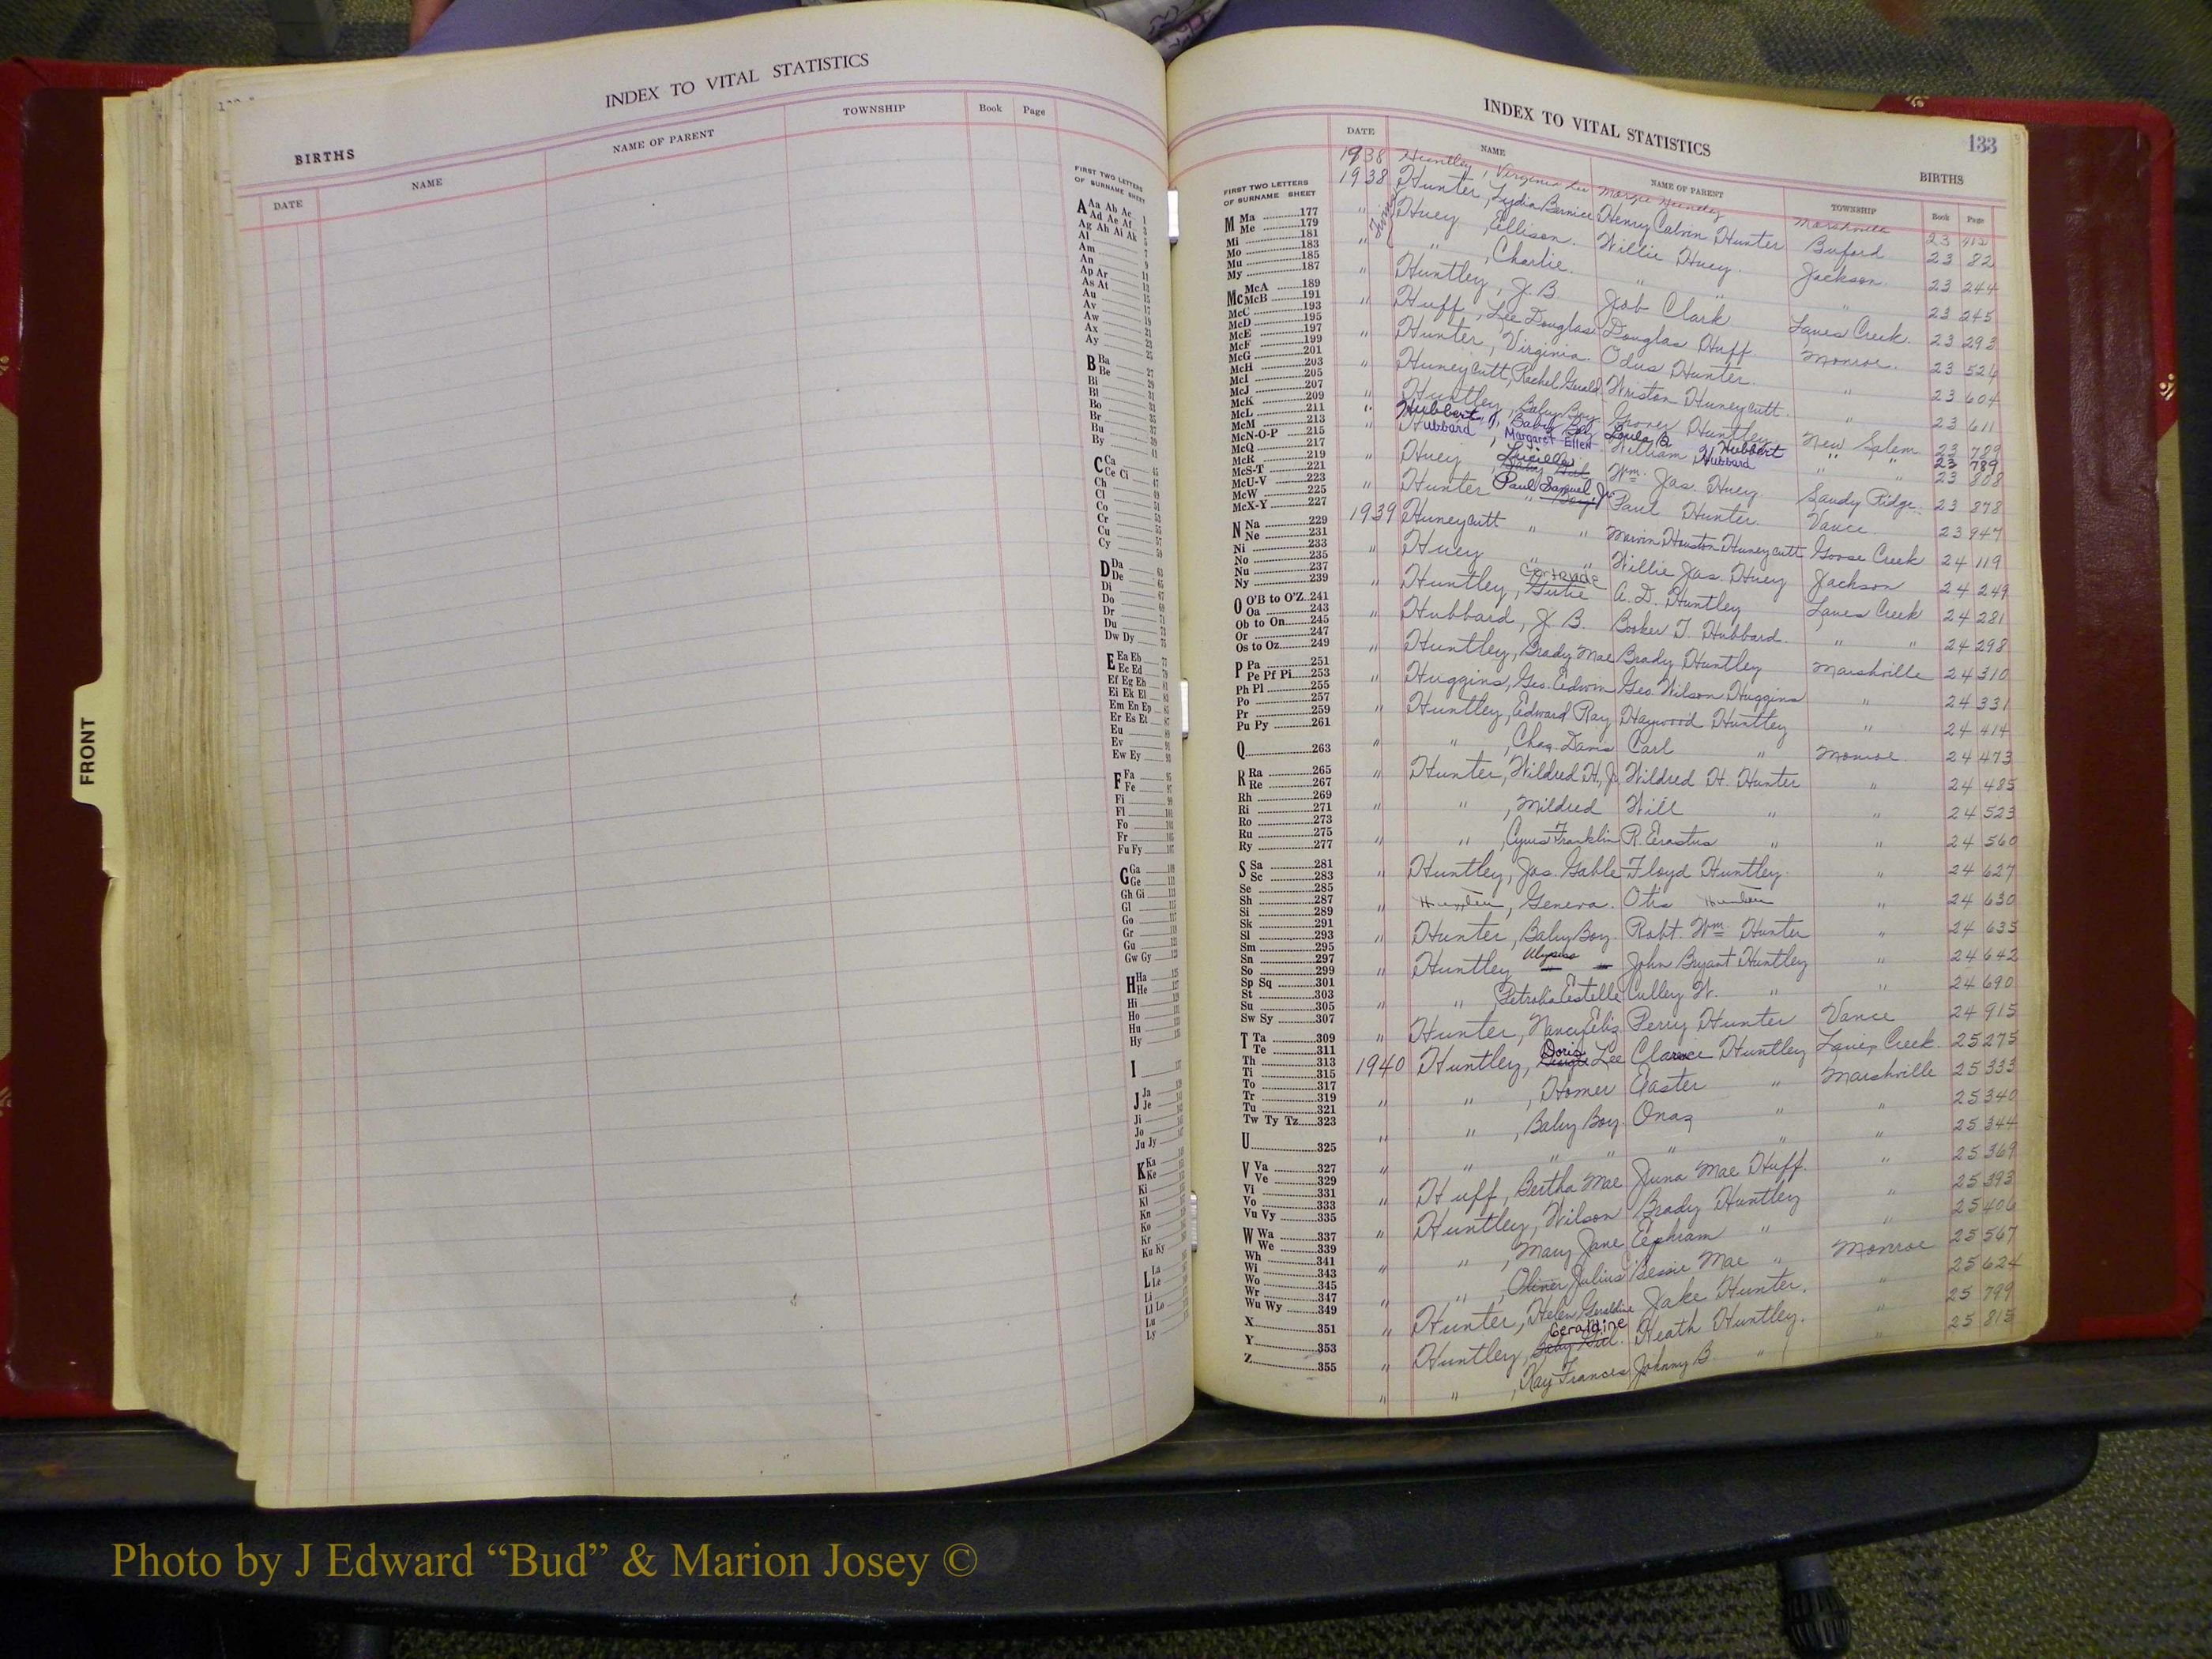 INDEX TO VITAL STATISTICS
BIRTHS
DATE NAME NAME OF PARENT TOWNSHIP Book Page
FIRST TWO LETTERS
OF SURNAME SHEET
A Aa Ab Ac 1
Ad Ae Af 3
Ag Ah Ai Ak 5
Al 7
Am 9
An
Ap Ar
As At
Au
Av
Aw
Ax
Ay
B Ba
Be
Bi
Bl
Bo
Br
Bu
By
C Ca
Ce Ci
Ch
Cl
Co
Cr
Cu
Cy
D Da
De
Di
Do
Dr
Du
Dw Dy
E Ea Eb
Ec Ed
Ef Eg Eh
Ei Ek El
Em En Ep
Er Es Et
Eu
Ev
Ew Ey
F Fa
Fe
Fi
Fl
Fo
Fr
Fu Fy
G Ga
Ge
Gh Gi
Gl
Go
Gr
Gu
Gw Gy
H Ha
He
Hi
Ho
Hu
Hy
I
J Ja
Je
Ji
Jo
Ju Jy
K Ka
Ke
Ki
Kl
Kn
Ko
Kr
Ku Ky
L La
Le
Li
Ll Lo
Lu
Ly
FRONT
INDEX TO VITAL STATISTICS 133
BIRTHS
DATE NAME NAME OF PARENT TOWNSHIP Book Page
FIRST TWO LETTERS
OF SURNAME SHEET
M Ma 177
Me 179
Mi 181
Mo 183
Mu 185
My 187
Mc McA 189
McB 191
McC 193
McD 195
McE 197
McF 199
McG 201
McH 203
McI 205
McJ 207
McK 209
McL 211
McM 213
McN-O-P 215
McQ 217
McR 219
McS-T 221
McU-V 223
McW 225
McX-Y 227
N Na 229
Ne 231
Ni 233
No 235
Nu 237
Ny 239
O O'B to O'Z 241
Oa 243
Ob to On 245
Or 247
Os to Oz 249
P Pa 251
Pe Pf Pi 253
Ph Pl 255
Po 257
Pr 259
Pu Py 261
Q 263
R Ra 265
Re 267
Rh 269
Ri 271
Ro 273
Ru 275
Ry 277
S Sa 281
Sc 283
Se 285
Sh 287
Si 289
Sk 291
Sl 293
Sm 295
Sn 297
So 299
Sp Sq 301
St 303
Su 305
Sw Sy 307
T Ta 309
Te 311
Th 313
Ti 315
To 317
Tr 319
Tu 321
Tw Ty Tz 323
U 325
V Va 327
Ve 329
Vi 331
Vo 333
Vu Vy 335
W Wa 337
We 339
Wh 341
Wi 343
Wo 345
Wr 347
Wu Wy 349
X 351
Y 353
Z 355
1938 Huntley, Virginia Lee Margie Huntley Marshville 23
1938 Hunter, Lydia Bernice Henry Calvin Hunter Buford 23 82
" Huey, Ellison. Willie Huey. Jackson. 23 244
" " , Charlie. " " " 23 245
" Huntley, J. B. Job Clark Lanes Creek. 23 293
" Huff, Lee Douglas Douglas Huff Monroe. 23 526
" Hunter, Virginia. Odus Hunter. " 23 604
" Huneycutt, Rachel Gerald. Wriston Huneycutt. " 23 611
" Huntley, Baby Boy. Grover Huntley New Salem 23 789
" Hubbert, Baby Boy Loula B. Hubbert " " 23 789
" Hubbard, Margaret Ellen William Hubbard " 23 808
" Huey, Lucille Wm. Jas. Huey. Sandy Ridge. 23 878
" Hunter Paul Samuel, Jr. Paul Hunter. Vance 23 947
1939 Huneycutt " " Marvin Houston Huneycutt Goose Creek 24 119
" Huey " " Willie Jas. Huey Jackson 24 249
" Huntley, Gertrude A. D. Huntley Lanes Creek 24 281
" Hubbard, J. B. Booker T. Hubbard. " " 24 298
" Huntley, Brady Mae Brady Huntley Marshville 24 310
" Huggins, Geo. Edwin Geo. Wilson Huggins " 24 331
" Huntley, Edward Ray Haywood Huntley " 24 414
" " , Chas. Davis Carl " Monroe. 24 473
" Hunter, Wildred H., Jr. Wildred H. Hunter " 24 485
" " , Mildred Will " " 24 523
" " , Cyrus Franklin R. Erastus " " 24 560
" Huntley, Jas. Gable Floyd Huntley. " 24 627
" Hunter, Geneva. Otis Hunter " 24 630
" Hunter, Baby Boy. Robt. Wm. Hunter " 24 635
" Huntley Ulysses John Bryant Huntley " 24 642
" " , Petrolia Estelle Culley W. " " 24 690
" Hunter, Nancy Eliz. Perry Hunter Vance 24 915
1940 Huntley, Doris Lee Clarence Huntley Lanes Creek. 25 275
" " , Homer Easter " Marshville 25 333
" " , Baby Boy. Onaz " " 25 340
" " " " " " " 25 344
" Huff, Bertha Mae Juna Mae Huff. " 25 369
" Huntley, Wilson Brady Huntley " 25 393
" " , Mary Jane Ephram " " 25 406
" " , Oliver Julius Bessie Mae " Monroe 25 567
" Hunter, Helen Geraldine Jake Hunter. " 25 624
" Huntley, Geraldine Heath Huntley. " 25 799
" " , Kay Frances Johnny B. " " 25 815
Photo by J Edward “Bud” & Marion Josey ©